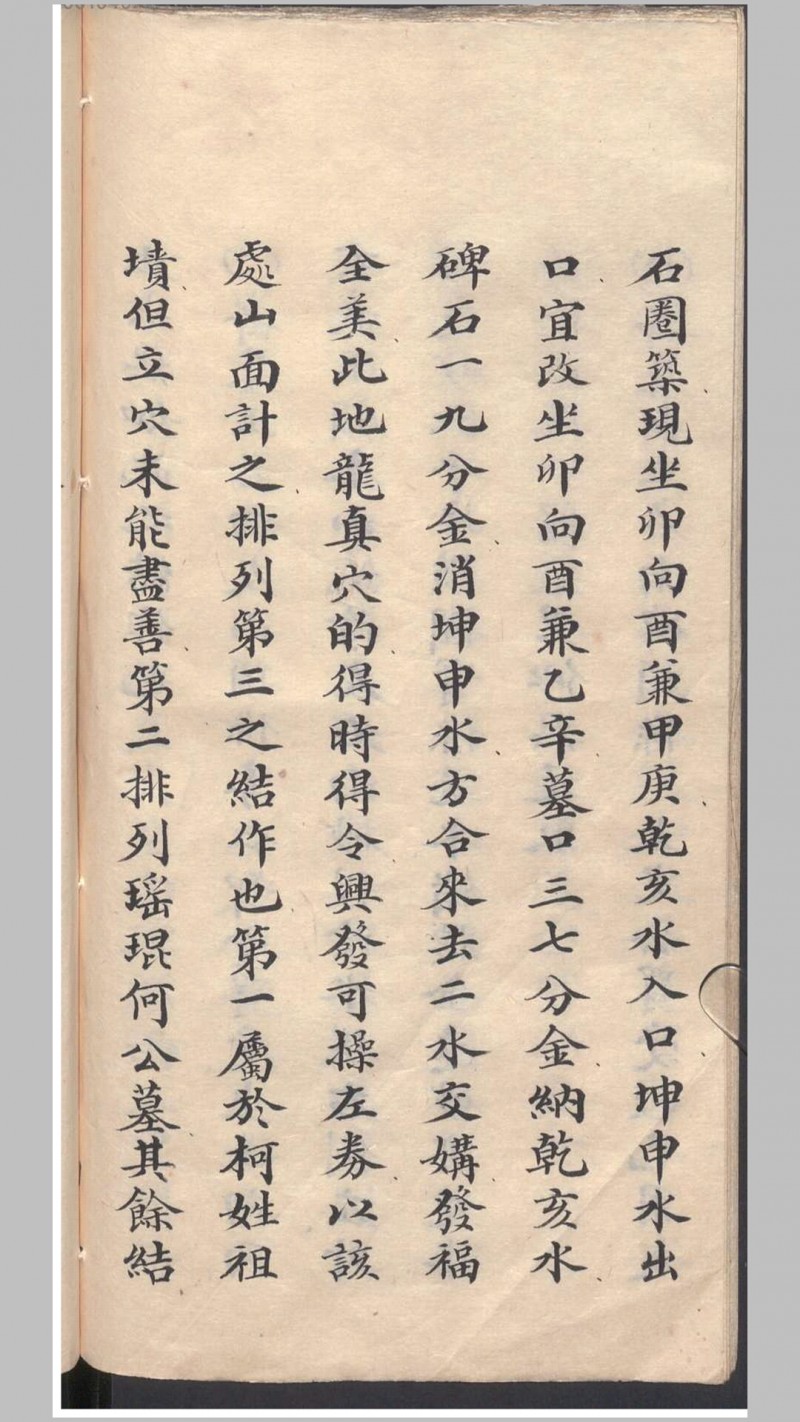 石圈築現坐卯向酉兼甲庚乾亥水入口坤申水出
口宜改坐卯向酉兼乙辛墓口三七分金納乾亥水
碑石一九分金消坤申水方合來去二水交媾發福
全美此地龍真穴的得時得令興發可操左券以該
處山面計之排列第三之結作也第一屬於柯姓祖
墳但立穴未能盡善第二排列瑶琨何公墓其餘結